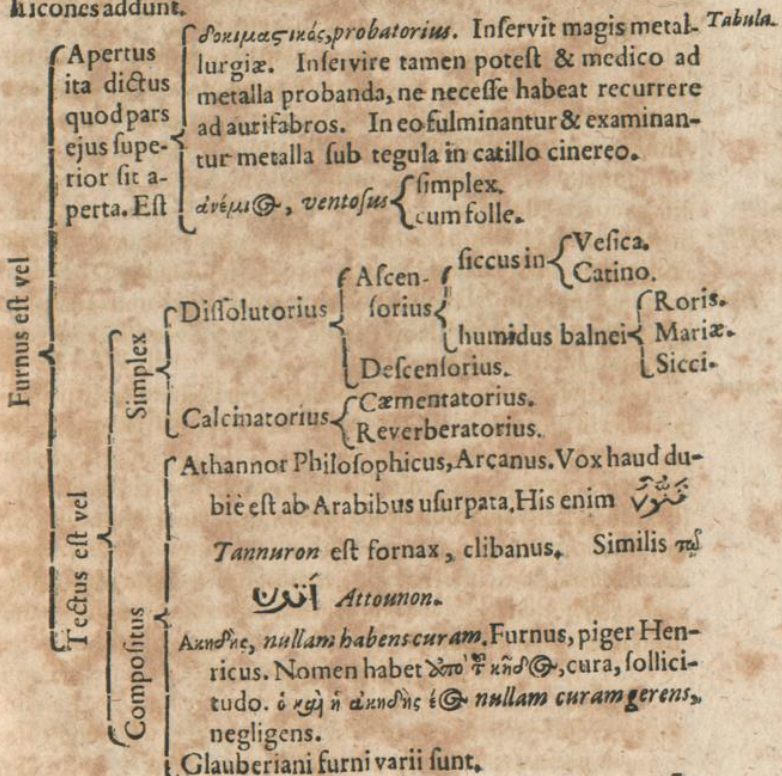 hicones addunt.
Tabula.
Furnus est vel
Apertus
ita dictus
quod pars
ejus supe-
rior sit a-
perta. Est
δοκιμαςικός, probatorius. Inservit magis metal-
lurgiæ. Inservire tamen potest & medico ad
metalla probanda, ne necesse habeat recurrere
ad aurifabros. In eo fulminantur & examinan-
tur metalla sub tegula in catillo cinereo.
ἀνέμιος, ventosus
simplex.
cum folle.
Tectus est vel
Simplex
Dissolutorius
Ascen-
sorius
siccus in
Vesica.
Catino.
humidus balnei
Roris.
Mariæ.
Sicci.
Descensorius.
Calcinatorius
Cæmentatorius.
Reverberatorius.
Compositus
Athannor Philosophicus, Arcanus. Vox haud du-
bie est ab Arabibus usurpata. His enim
Tannuron est fornax, clibanus. Similis τῷ
أتون Attounon.
Ακηδὴς, nullam habens curam. Furnus, piger Hen-
ricus. Nomen habet ἀπὸ τῦ κῆδος, cura, sollici-
tudo. ὁ καὶ ἡ ἀκηδὴς έος nullam curam gerens,
negligens.
Glauberiani furni varii sunt.